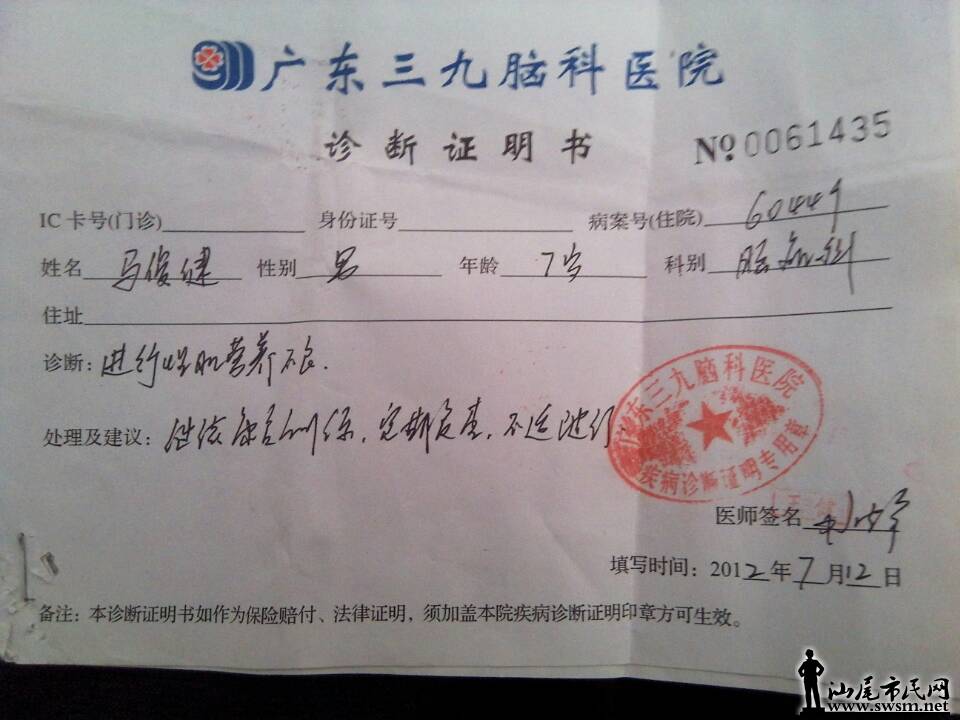 广东三九脑科医院
诊断证明书
№ 0061435
IC 卡号(门诊) 身份证号 病案号(住院) 60449
姓名 马俊健 性别 男 年龄 7岁 科别
住址
诊断：进行性肌营养不良.
处理及建议：继续康复训练，定期复查，不适随诊
广东三九脑科医院
疾病诊断证明专用章
医师签名
填写时间：2012年7月12日
备注：本诊断证明书如作为保险赔付、法律证明，须加盖本院疾病诊断证明印章方可生效。
汕尾市民网
www.swsm.net